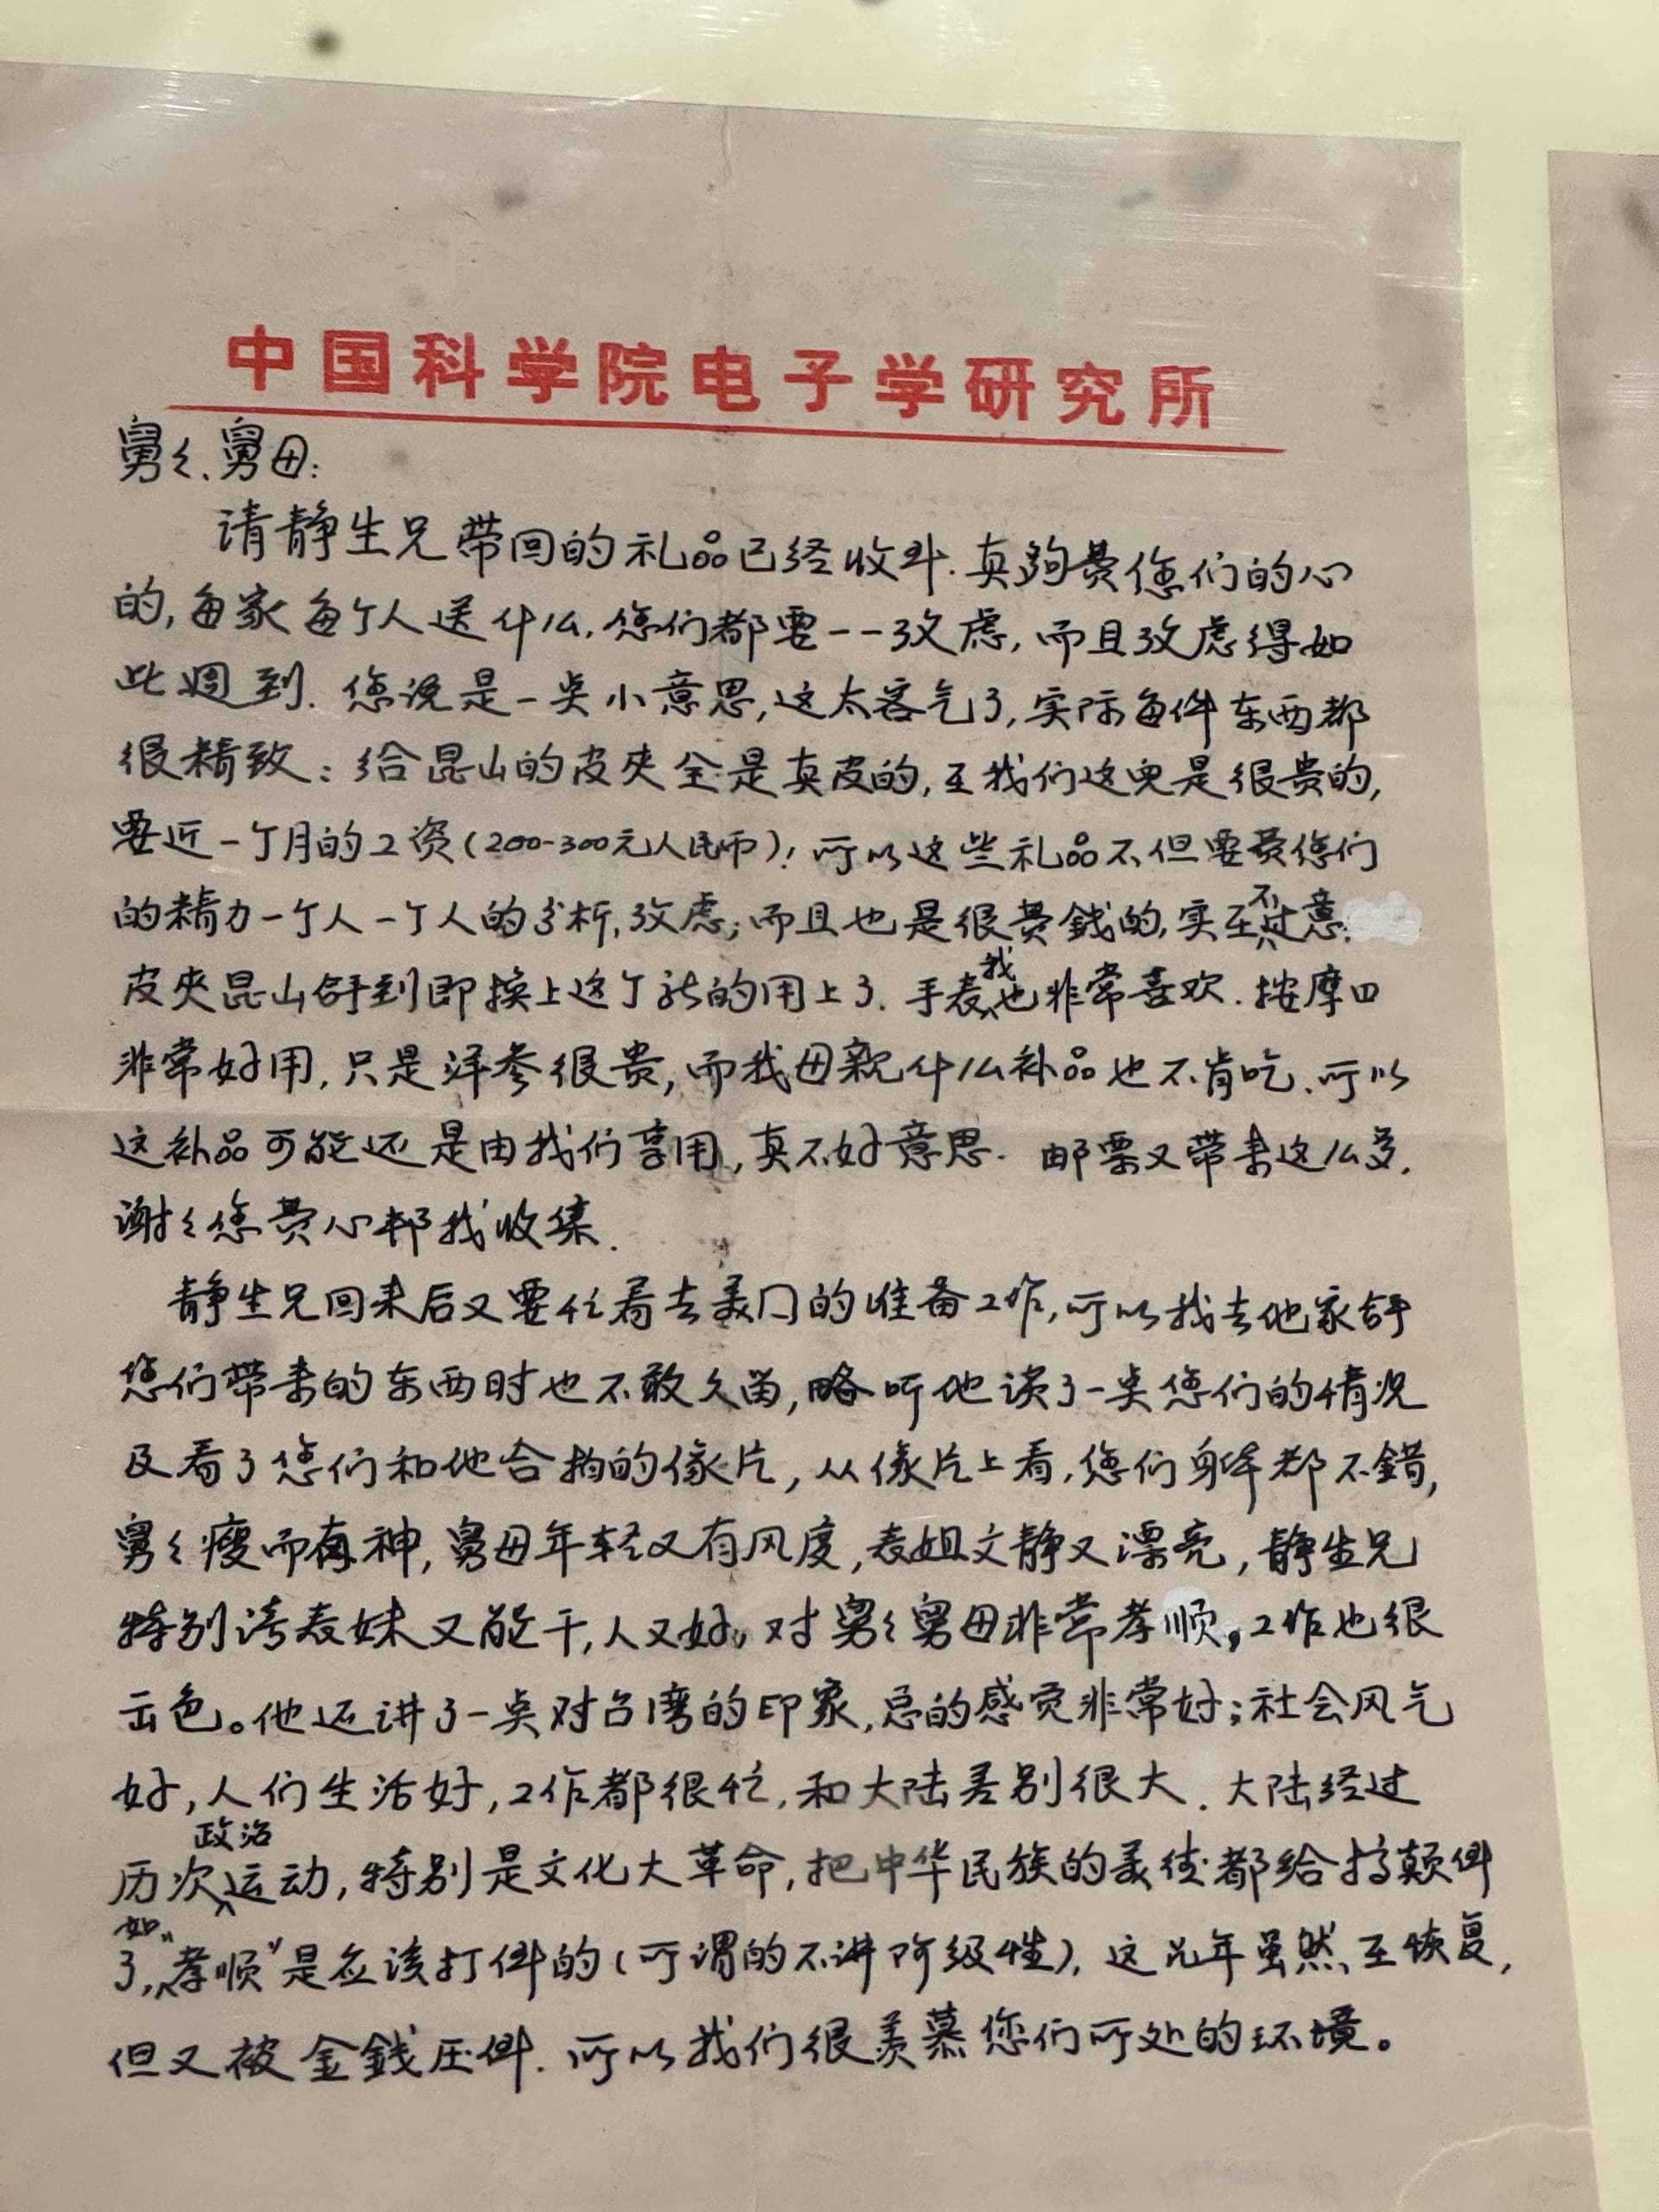 中国科学院电子学研究所
舅々、舅母:
请静生兄带回的礼品已经收到.真夠费您们的心
的,每家每个人送什么,您们都要一一攷虑,而且攷虑得如
此週到.您说是一点小意思,这太客气了,实际每件东西都
很精致:给昆山的皮夹全是真皮的,在我们这儿是很贵的,
要近一个月的工资(200-300元人民币)!所以这些礼品不但要费您们
的精力一个人一个人的分析,攷虑;而且也是很费錢的,实在不过意.
皮夹昆山拿到即换上这个新的用上了.手表我也非常喜欢.按摩口
非常好用,只是洋参很贵,而我母親什么补品也不肯吃.所以
这补品可能还是由我们享用,真不好意思.邮票又带来这么多.
谢々您费心帮我收集.
静生兄回来后又要忙着去美门的准备工作,所以我去他家拿
您们带来的东西时也不敢久留,略听他谈了一点您们的情况
及看了您们和他合拍的像片,从像片上看,您们身体都不错,
舅々瘦而有神,舅母年轻又有风度,表姐文静又漂亮,静生兄
特别夸表妹又能干,人又好,对舅々舅母非常孝顺,工作也很
出色。他还讲了一点对台湾的印象,总的感觉非常好;社会风气
好,人们生活好,工作都很忙,和大陆差别很大.大陆经过
历次政治运动,特别是文化大革命,把中华民族的美德都给搞颠倒
了,如"孝顺"是应该打倒的(所谓的不讲阶级性),这几年虽然在恢复,
但又被金錢压倒.所以我们很羡慕您们所处的环境。